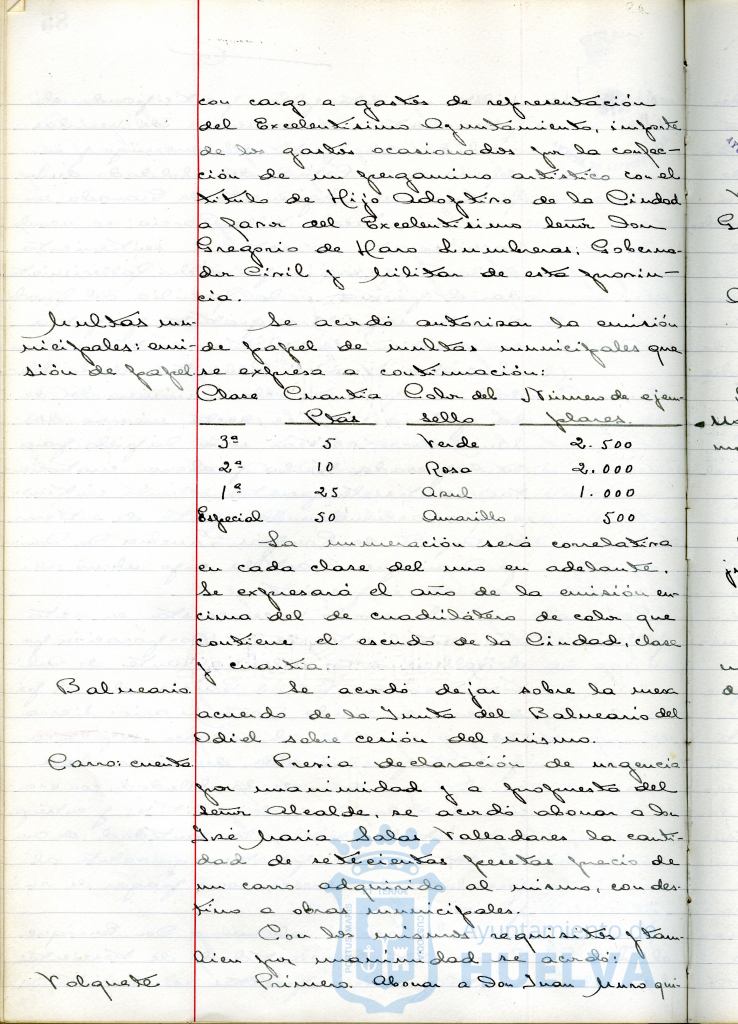 con cargo a gastos de representación
del Excelentísimo Ayuntamiento, importe
de los gastos ocasionados por la confec-
ción de un pergamino artístico con el
título de Hijo Adoptivo de la Ciudad
a favor del Excelentísimo Señor Don
Gregorio de Haro Lumbreras, Goberna-
dor Civil y Militar de esta provin-
cia.
Multas mu-
nicipales: emi-
sión de papel.
Se acordó autorizar la emisión
de papel de multas municipales que
se expresa a continuación:
Clase Cuantía Color del Número de ejem-
Ptas sello plares.
3ª 5 Verde 2.500
2ª 10 Rosa 2.000
1ª 25 Azul 1.000
Especial 50 Amarillo 500
La numeración será correlativa
en cada clase del uno en adelante.
Se expresará el año de la emisión en-
cima del de cuadrilátero de color que
contiene el escudo de la Ciudad, clase
y cuantía.
Balneario.
Se acordó dejar sobre la mesa
acuerdo de la Junta del Balneario del
Odiel sobre cesión del mismo.
Carro: cuenta.
Previa declaración de urgencia
por unanimidad y a propuesta del
Señor Alcalde, se acordó abonar a don
José María Salas Valladares la canti-
dad de setecientas pesetas precio de
un carro adquirido al mismo, con des-
tino a obras municipales.
Con los mismos requisitos y tam-
bien por unanimidad se acordó:
Volquete
Primero. Abonar a Don Juan Muro qui-
Ayuntamiento de
HUELVA